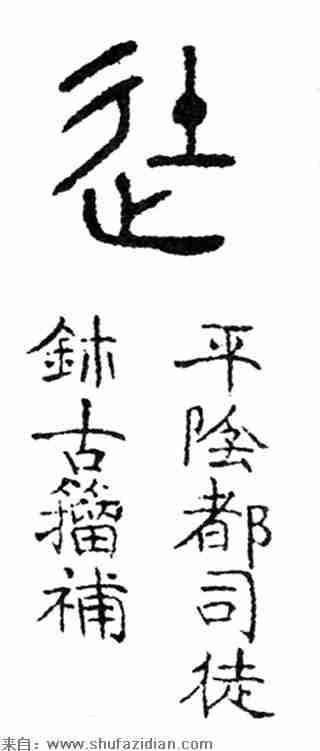 徒
平陰都司徒
鉨古籀補
来自：www.shufazidian.com